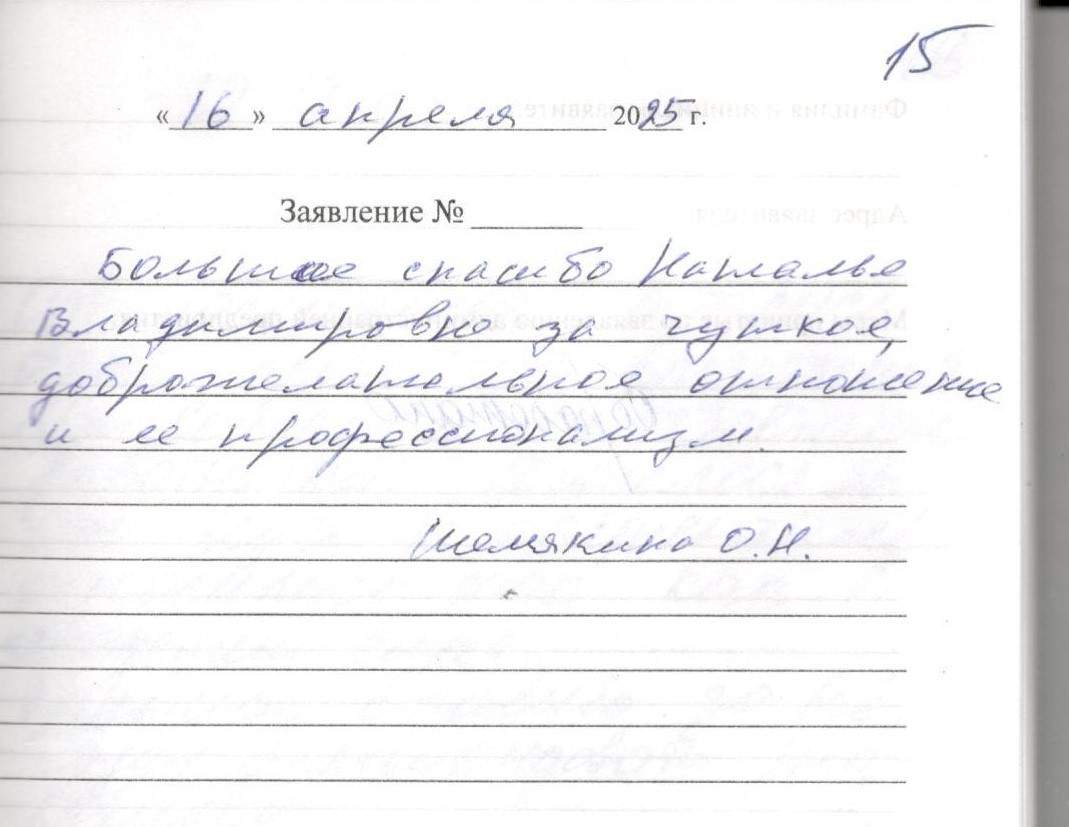 15
«16» апреля 2025 г.
Заявление №
Большое спасибо Наталье
Владимировне за чуткое,
доброжелательное отношение
и ее профессионализм.
Шемякина О.Н.